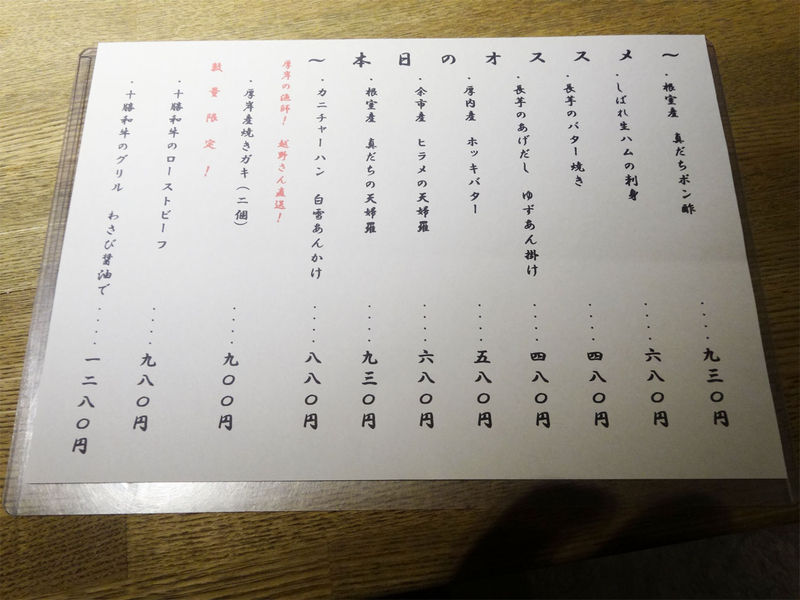 ～本日のオススメ～
・根室産 真だちポン酢 ・・・・九三〇円
・しばれ生ハムの刺身 ・・・・六八〇円
・長芋のバター焼き ・・・・四八〇円
・長芋のあげだし ゆずあん掛け ・・・・四八〇円
・厚内産 ホッキバター ・・・・五八〇円
・余市産 ヒラメの天婦羅 ・・・・六八〇円
・根室産 真だちの天婦羅 ・・・・九三〇円
・カニチャーハン 白雪あんかけ ・・・・八八〇円
厚岸の漁師！ 越野さん直送！
・厚岸産焼きガキ（二個） ・・・・九〇〇円
数量限定！
・十勝和牛のローストビーフ ・・・・九八〇円
・十勝和牛のグリル わさび醤油で ・・・・一二八〇円